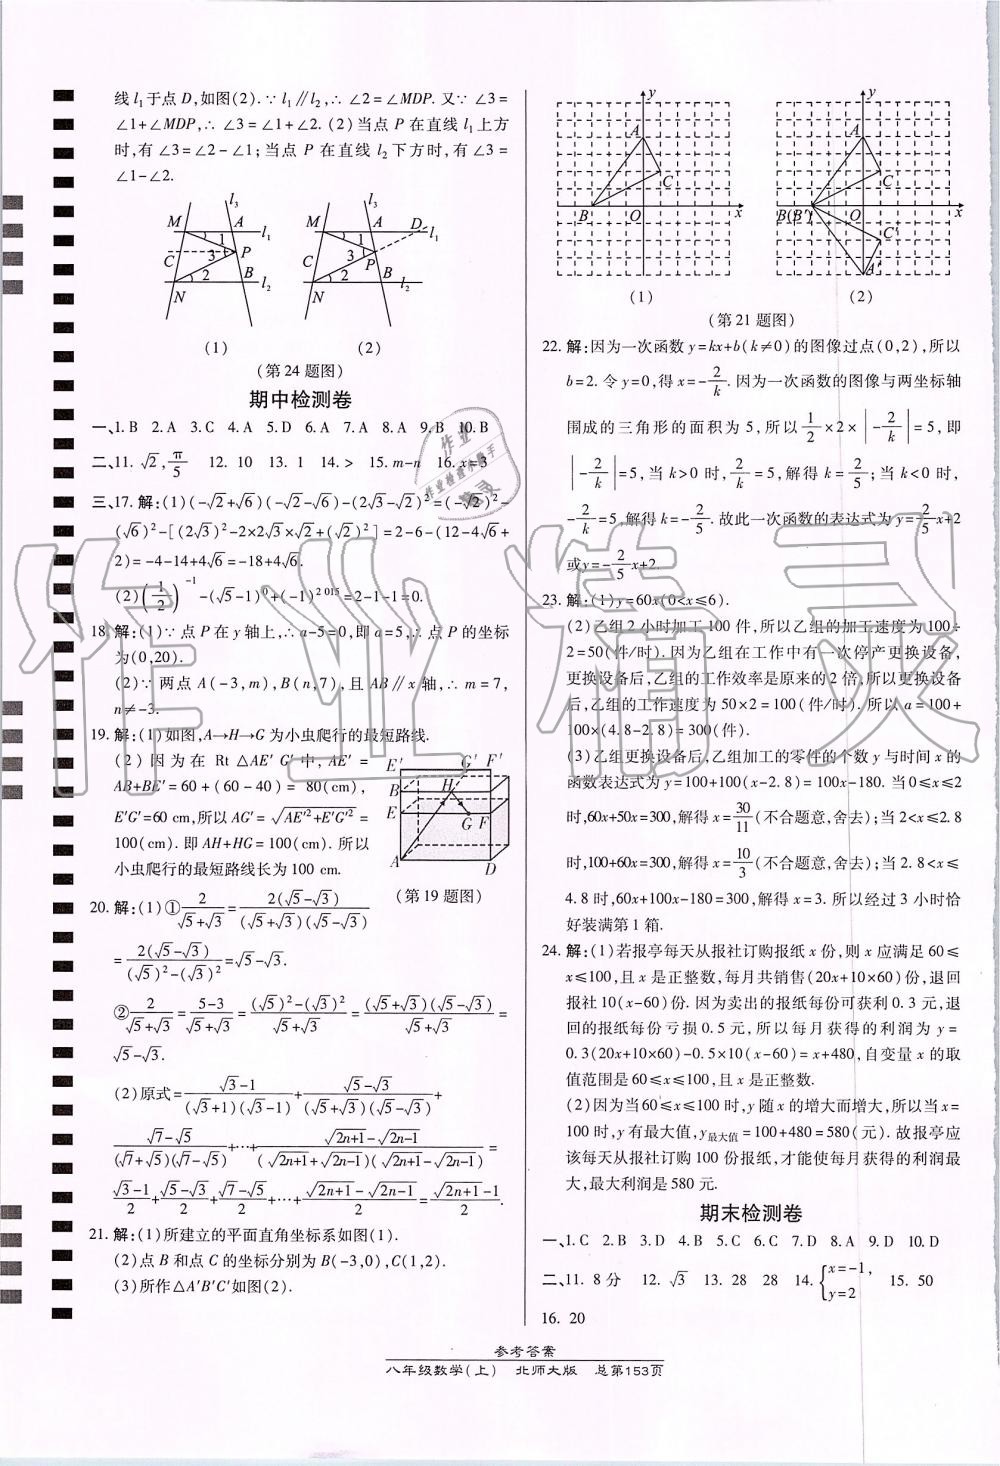 线l₁于点D,如图(2).∵l₁∥l₂,∴∠2=∠MDP.又∵∠3=
∠1+∠MDP,∴∠3=∠1+∠2.(2)当点P在直线l₁上方
时,有∠3=∠2-∠1;当点P在直线l₂下方时,有∠3=
∠1-∠2.
M A l₃ l₁ C 1 3 P 2 B N l₂
M A l₃ D l₁ C 1 3 P 2 B N l₂
(1) (2)
(第24题图)
期中检测卷
一、1.B 2.A 3.C 4.A 5.D 6.A 7.A 8.A 9.B 10.B
二、11.√2,π/5 12.10 13.1 14.> 15.m-n 16.x=3
三、17.解:(1)(-√2+√6)(-√2-√6)-(2√3-√2)²=(-√2)²-
(√6)²-[(2√3)²-2×2√3×√2+(√2)²]=2-6-(12-4√6+
2)=-4-14+4√6=-18+4√6.
(2)(1/2)⁻¹-(√5-1)⁰+(-1)²⁰¹⁵=2-1-1=0.
18.解:(1)∵点P在y轴上,∴a-5=0,即a=5,∴点P的坐标
为(0,20).
(2)∵两点A(-3,m),B(n,7),且AB∥x轴,∴m=7,
n≠-3.
19.解:(1)如图,A→H→G为小虫爬行的最短路线.
(2)因为在Rt△AE′G′中,AE′=
AB+BE′=60+(60-40)=80(cm),
E′G′=60cm,所以AG′=√(AE′²+E′G′²)=
100(cm).即AH+HG=100(cm).所以
小虫爬行的最短路线长为100 cm.
E′ G′ F′ B H E G F A D
(第19题图)
20.解:(1)①2/(√5+√3)=2(√5-√3)/((√5+√3)(√5-√3))
=2(√5-√3)/((√5)²-(√3)²)=√5-√3.
②2/(√5+√3)=(5-3)/(√5+√3)=((√5)²-(√3)²)/(√5+√3)=((√5+√3)(√5-√3))/(√5+√3)=
√5-√3.
(2)原式=(√3-1)/((√3+1)(√3-1))+(√5-√3)/((√5+√3)(√5-√3))+
(√7-√5)/((√7+√5)(√7-√5))+…+(√(2n+1)-√(2n-1))/((√(2n+1)+√(2n-1))(√(2n+1)-√(2n-1)))=
(√3-1)/2+(√5-√3)/2+(√7-√5)/2+…+(√(2n+1)-√(2n-1))/2=(√(2n+1)-1)/2.
21.解:(1)所建立的平面直角坐标系如图(1).
(2)点B和点C的坐标分别为B(-3,0),C(1,2).
(3)所作△A′B′C′如图(2).
y A C B O x
y A C B(B′) O x C′ A′
(1) (2)
(第21题图)
22.解:因为一次函数y=kx+b(k≠0)的图像过点(0,2),所以
b=2.令y=0,得x=-2/k.因为一次函数的图像与两坐标轴
围成的三角形的面积为5,所以1/2×2×|-2/k|=5,即
|-2/k|=5,当k>0时,2/k=5,解得k=2/5;当k<0时,
-2/k=5,解得k=-2/5.故此一次函数的表达式为y=2/5x+2
或y=-2/5x+2.
23.解:(1)y=60x(0<x≤6).
(2)乙组2小时加工100件,所以乙组的加工速度为100÷
2=50(件/时).因为乙组在工作中有一次停产更换设备,
更换设备后,乙组的工作效率是原来的2倍,所以更换设备
后,乙组的工作速度为50×2=100(件/时).所以a=100+
100×(4.8-2.8)=300(件).
(3)乙组更换设备后,乙组加工的零件的个数y与时间x的
函数表达式为y=100+100(x-2.8)=100x-180.当0≤x≤2
时,60x+50x=300,解得x=30/11(不合题意,舍去);当2<x≤2.8
时,100+60x=300,解得x=10/3(不合题意,舍去);当2.8<x≤
4.8时,60x+100x-180=300,解得x=3.所以经过3小时恰
好装满第1箱.
24.解:(1)若报亭每天从报社订购报纸x份,则x应满足60≤
x≤100,且x是正整数,每月共销售(20x+10×60)份,退回
报社10(x-60)份.因为卖出的报纸每份可获利0.3元,退
回的报纸每份亏损0.5元,所以每月获得的利润为y=
0.3(20x+10×60)-0.5×10(x-60)=x+480,自变量x的取
值范围是60≤x≤100,且x是正整数.
(2)因为当60≤x≤100时,y随x的增大而增大,所以当x=
100时,y有最大值,y最大值=100+480=580(元).故报亭应
该每天从报社订购100份报纸,才能使每月获得的利润最
大,最大利润是580元.
期末检测卷
一、1.C 2.B 3.D 4.A 5.B 6.C 7.D 8.A 9.D 10.D
二、11.8分 12.√3 13.28 28 14.{x=-1, y=2 15.50
16.20
参考答案
八年级数学(上) 北师大版 总第153页
作业精灵